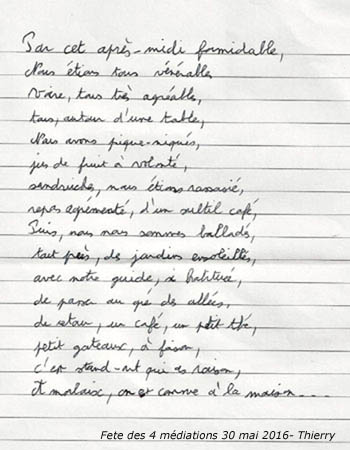 Par cet après-midi formidable,
Nous étions tous vénérables
Voire, tous très agréables,
tous, autour d'une table,
Nous avons pique-niqués,
jus de fruit à volonté,
sandwichs, nous étions rassasié,
repas agrémenté, d'un subtil café,
Puis, nous nous sommes balladés,
tout près, des jardins ensoleillés,
avec notre guide, a habitué,
de passer au gré des allées,
de retour, un café, un petit thé,
petit gateaux, à foison,
c'est stand-ut qui as raison,
Et malaix, on est comme à la maison....
Fete des 4 médiations 30 mai 2016- Thierry